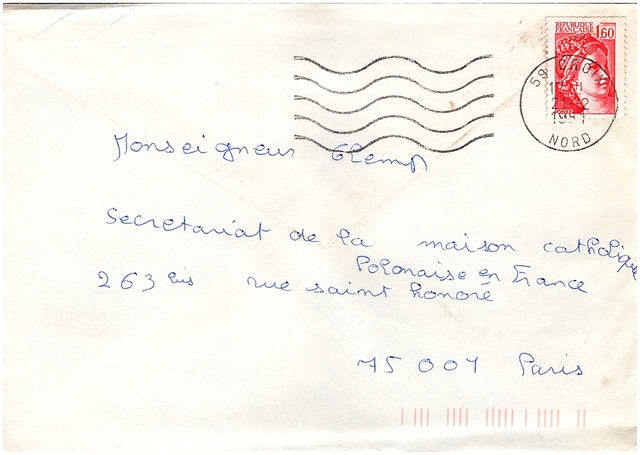 REPUBLIQUE
FRANCAISE
1,60
59 CROIX
1981
NORD
Monseigneur Glemp
Secretariat de la maison catholique
Polonaise en France
263 bis rue saint honoré
75 001 Paris